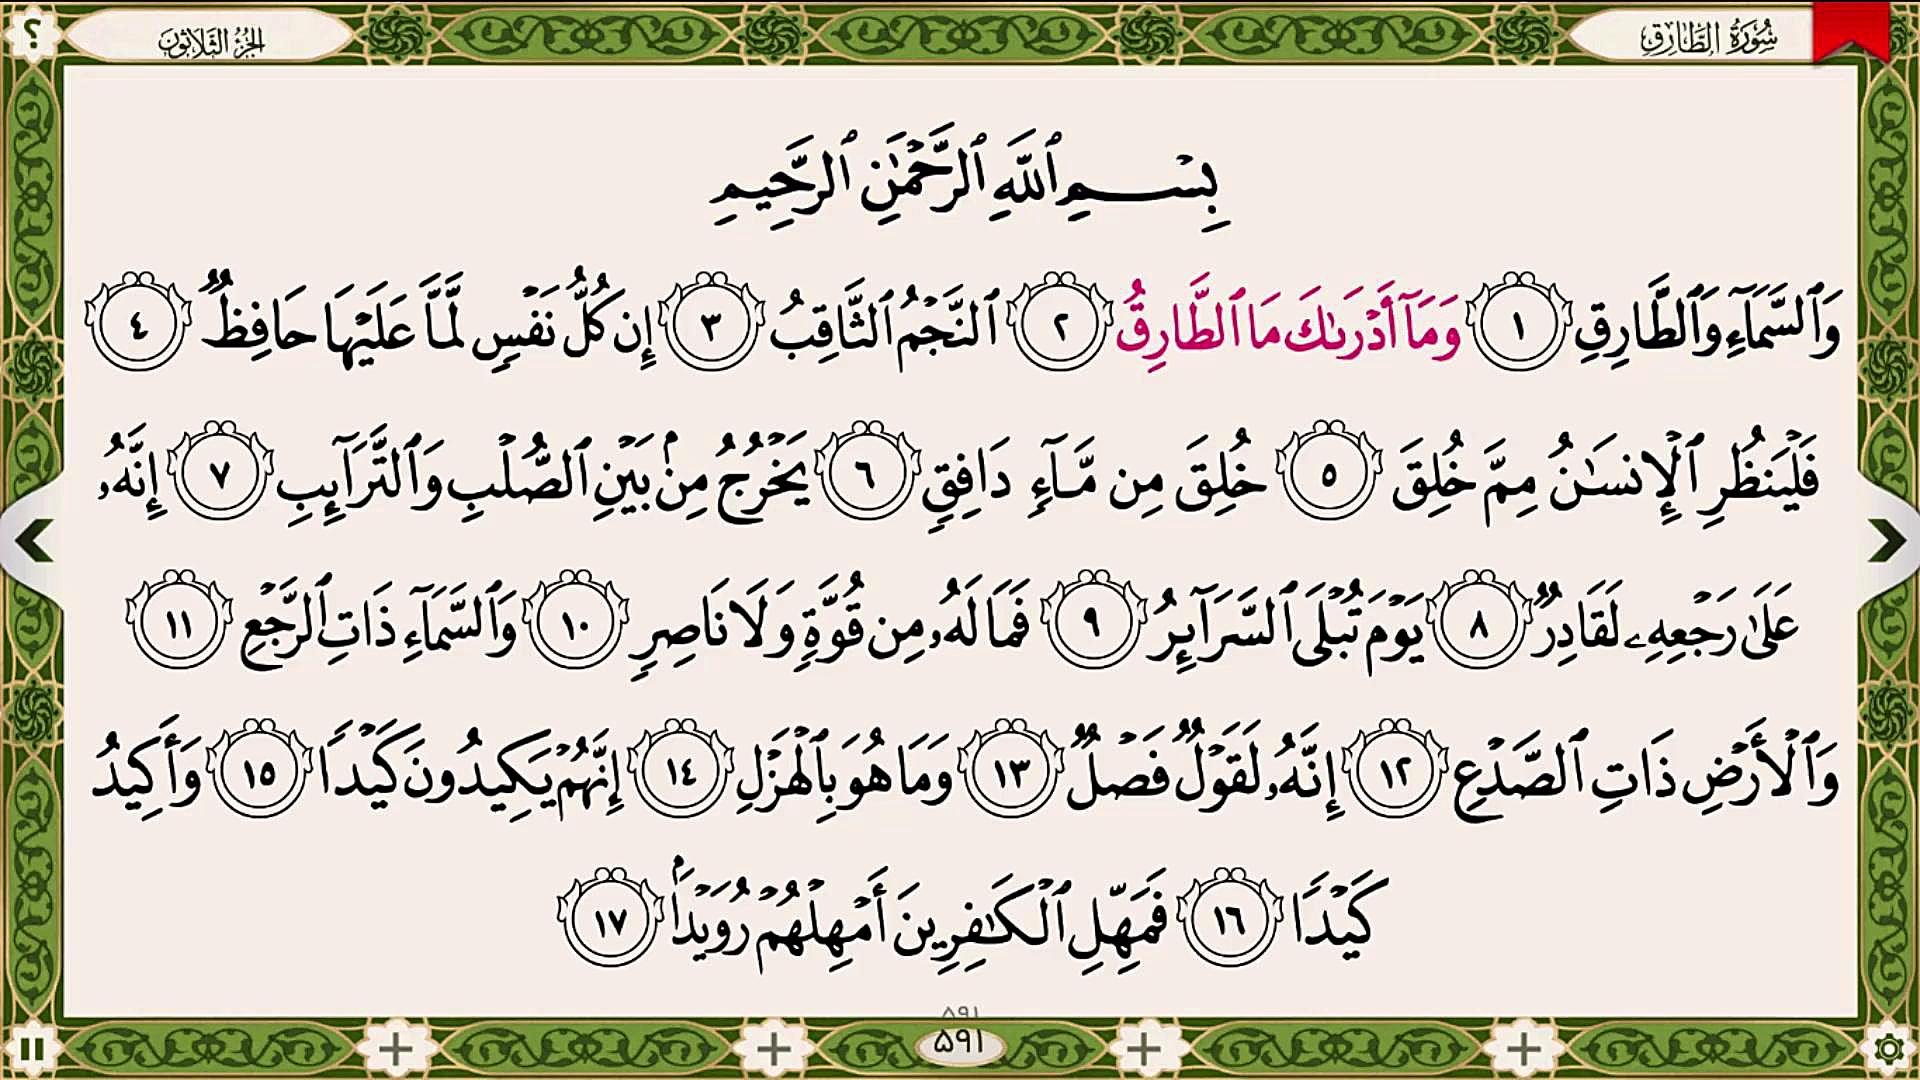 ؟
سُورَةُ الطَّارِقِ
الجُزْءُ الثَّلَاثُونَ
بِسْمِ ٱللَّهِ ٱلرَّحْمَٰنِ ٱلرَّحِيمِ
وَٱلسَّمَآءِ وَٱلطَّارِقِ ١ وَمَآ أَدْرَىٰكَ مَا ٱلطَّارِقُ ٢ ٱلنَّجْمُ ٱلثَّاقِبُ ٣ إِن كُلُّ نَفْسٍ لَّمَّا عَلَيْهَا حَافِظٌ ٤
فَلْيَنظُرِ ٱلْإِنسَٰنُ مِمَّ خُلِقَ ٥ خُلِقَ مِن مَّآءٍ دَافِقٍ ٦ يَخْرُجُ مِنۢ بَيْنِ ٱلصُّلْبِ وَٱلتَّرَآئِبِ ٧ إِنَّهُۥ
عَلَىٰ رَجْعِهِۦ لَقَادِرٌ ٨ يَوْمَ تُبْلَى ٱلسَّرَآئِرُ ٩ فَمَا لَهُۥ مِن قُوَّةٍ وَلَا نَاصِرٍ ١٠ وَٱلسَّمَآءِ ذَاتِ ٱلرَّجْعِ ١١
وَٱلْأَرْضِ ذَاتِ ٱلصَّدْعِ ١٢ إِنَّهُۥ لَقَوْلٌ فَصْلٌ ١٣ وَمَا هُوَ بِٱلْهَزْلِ ١٤ إِنَّهُمْ يَكِيدُونَ كَيْدًا ١٥ وَأَكِيدُ
كَيْدًا ١٦ فَمَهِّلِ ٱلْكَٰفِرِينَ أَمْهِلْهُمْ رُوَيْدَۢا ١٧
٥٩١
٥٩١